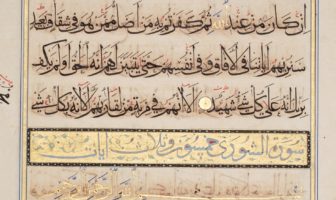 ان كان من عند الله ثم كفرتم به من اضل ممن هو في شقاق بعيد
سنريهم اياتنا في الافاق وفي انفسهم حتى يتبين لهم انه الحق اولم يكف
بربك انه على كل شيء شهيد الا انهم في مرية من لقاء ربهم الا انه بكل شيء
سورة الشورى خمسون وثلاث ايات